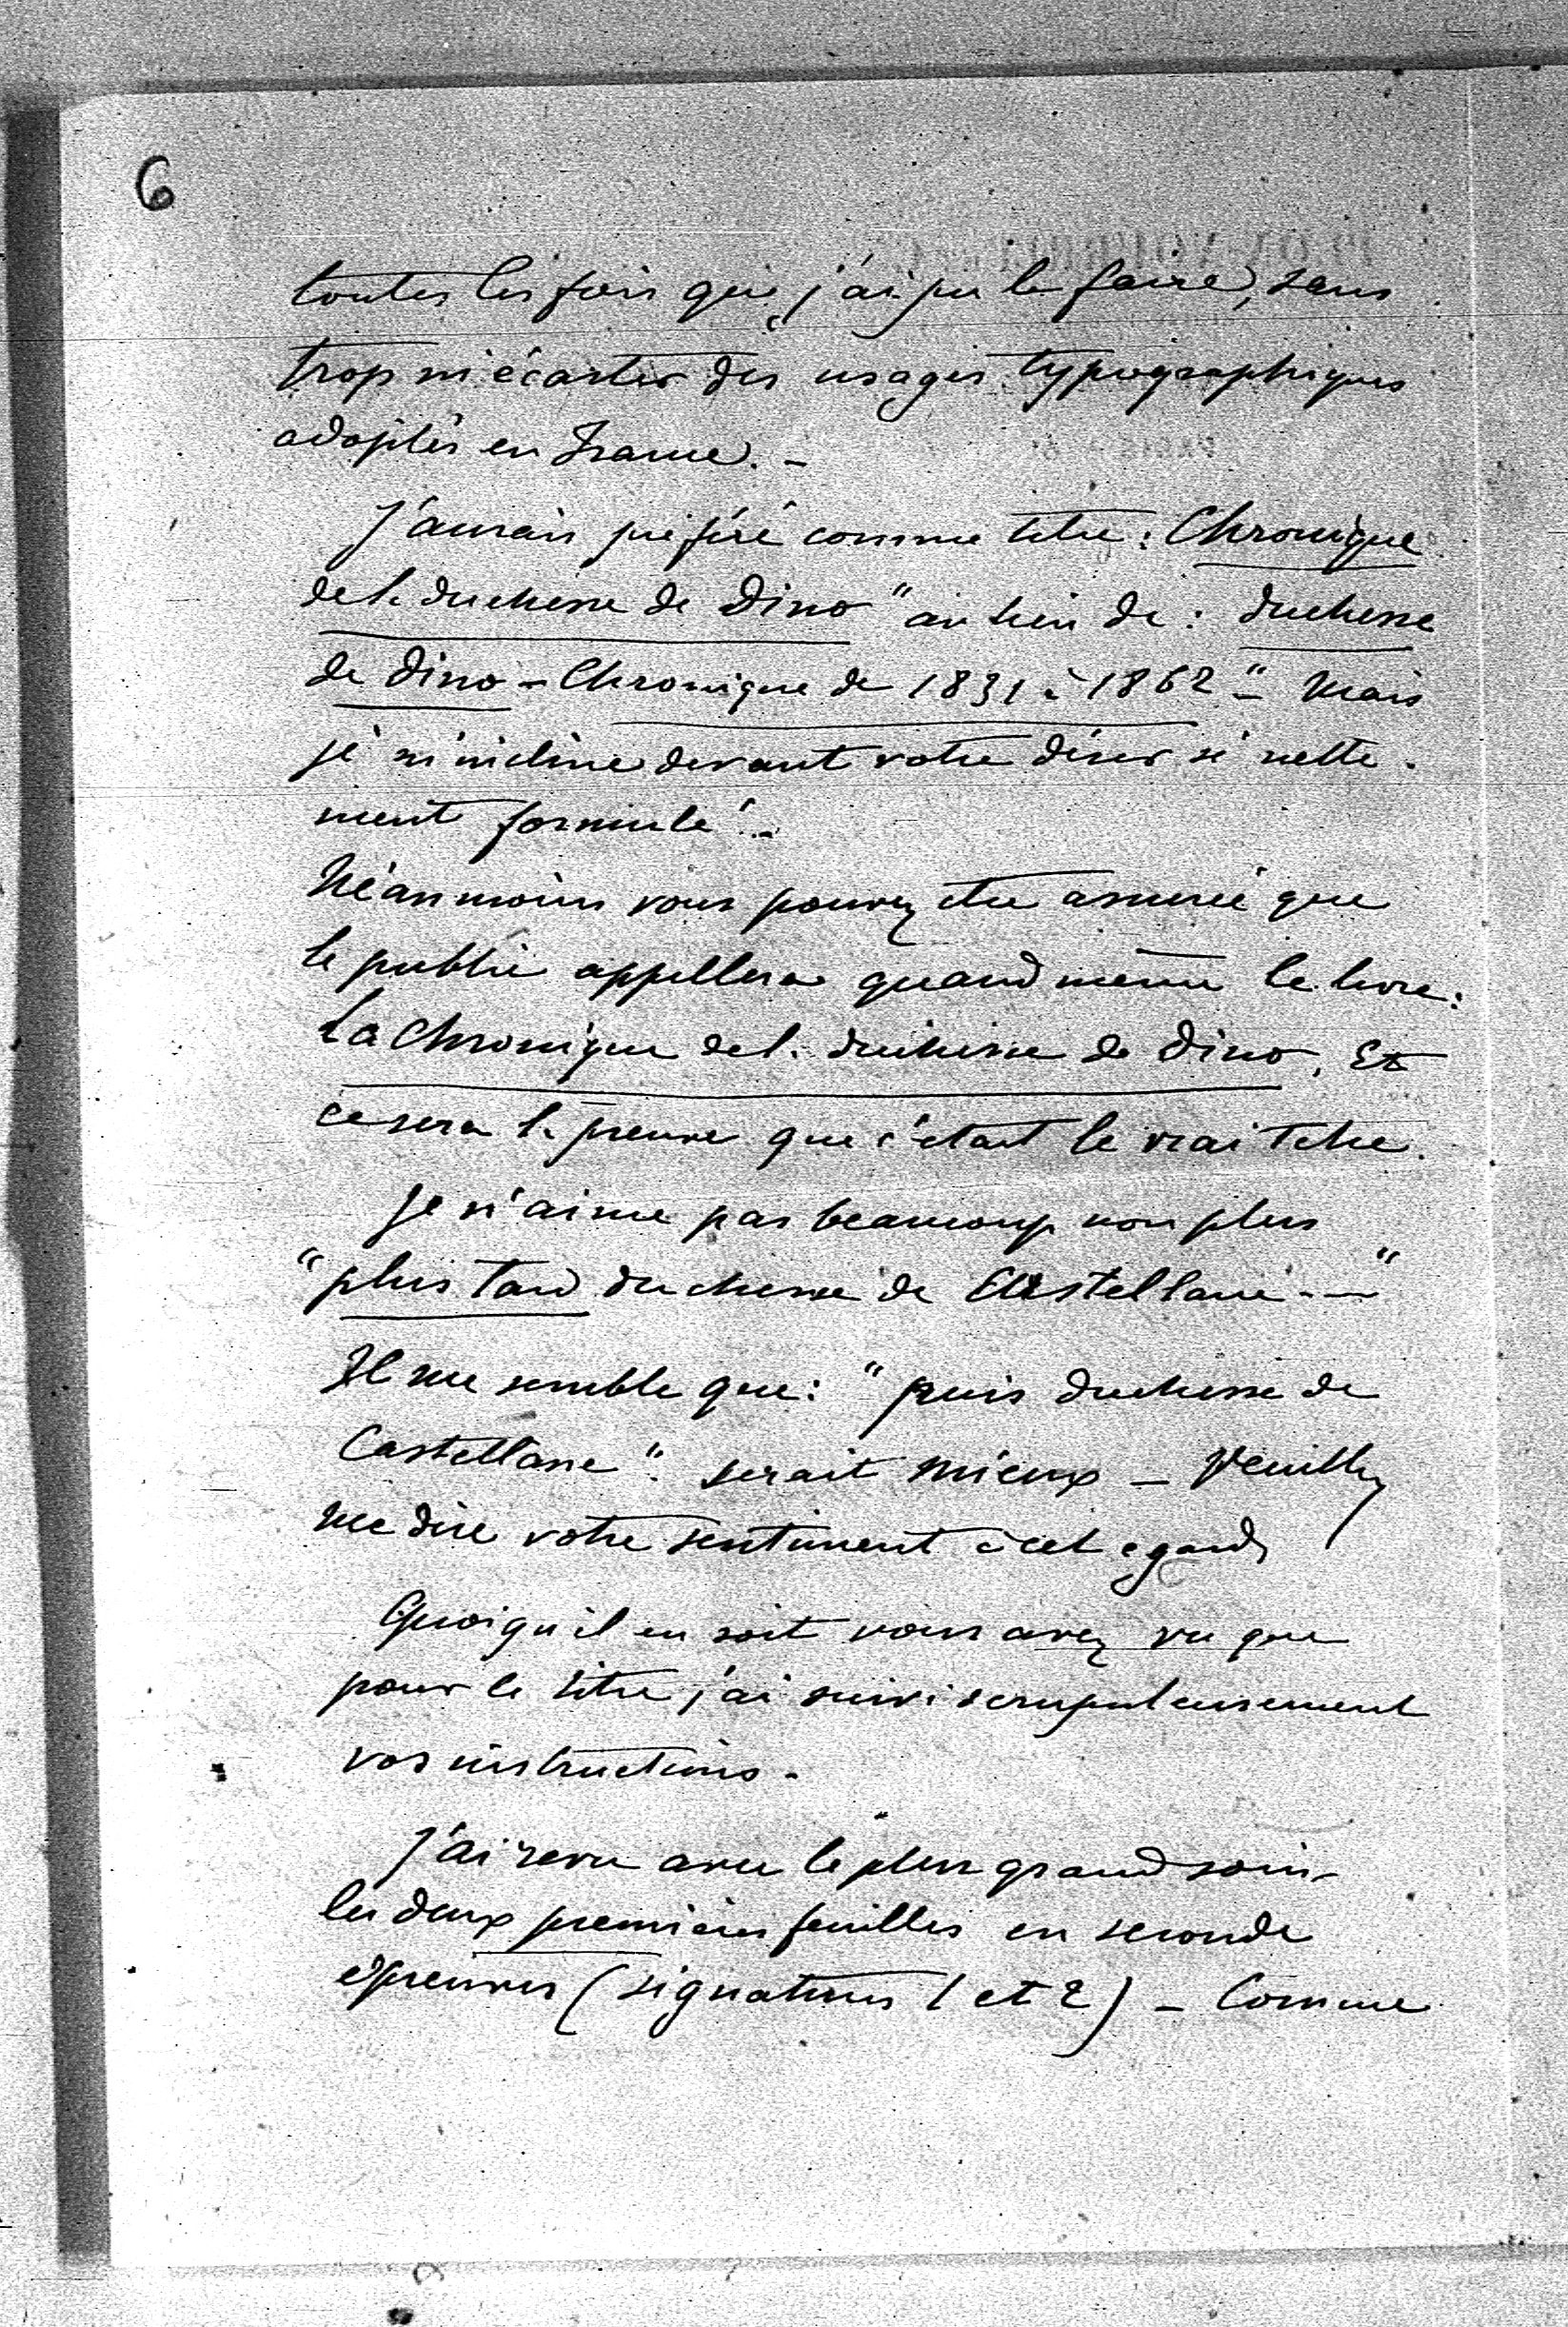 6
toutes les fois que j'ai pu le faire, sans
trop m'écarter des usages typographiques
adoptés en France. -
J'aurais préféré comme titre : Chronique
de la duchesse de Dino" au lieu de : duchesse
de Dino - Chronique de 1831 à 1862" - Mais
je m'incline devant votre désir si nette-
ment formulé. -
Néanmoins vous pouvez être assurée que
le public appellera quand même le livre :
La Chronique de la duchesse de Dino. Et
ce sera la preuve que c'était le vrai titre.
Je n'aime pas beaucoup non plus
"plus tard duchesse de Castellane - - "
Il me semble que : "puis duchesse de
Castellane" serait mieux - Veuillez
me dire votre sentiment à cet egard
Quoiqu'il en soit vous avez vu que
pour le titre j'ai suivi scrupuleusement
vos instructions -
J'ai revu avec le plus grand soin
les deux premières feuilles en seconde
épreuves (signatures 1 et 2) - Comme